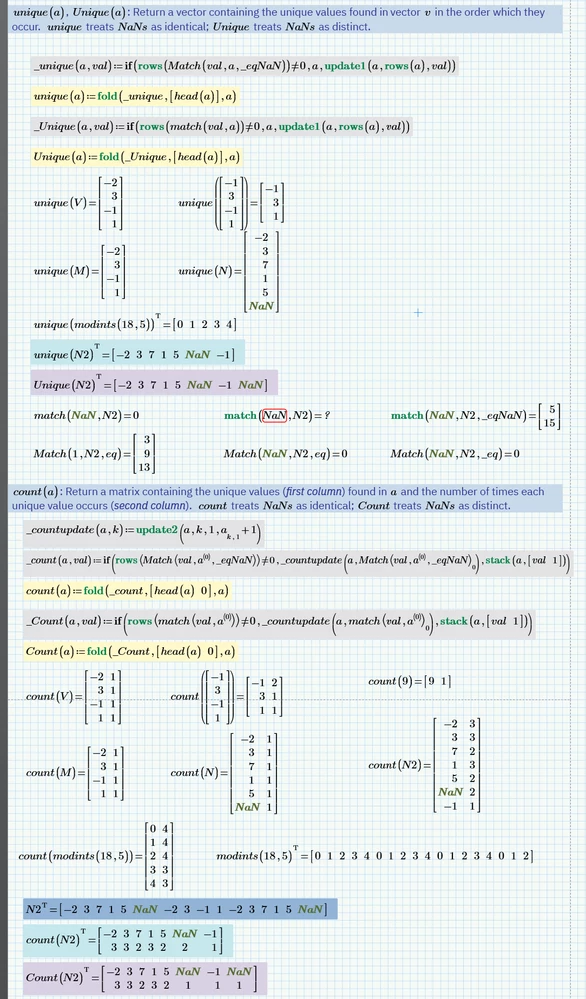 unique(a), Unique(a): Return a vector containing the unique values found in vector v in the order which they
occur. unique treats NaNs as identical; Unique treats NaNs as distinct.
_unique(a,val):=if(rows(Match(val,a,_eqNaN))≠0,a,update1(a,rows(a),val))
unique(a):=fold(_unique,[head(a)],a)
_Unique(a,val):=if(rows(match(val,a))≠0,a,update1(a,rows(a),val))
Unique(a):=fold(_Unique,[head(a)],a)
unique(V)=[-2 3 -1 1] unique([-1 3 -1 1])=[-1 3 1]
unique(M)=[-2 3 -1 1] unique(N)=[-2 3 7 1 5 NaN]
unique(modints(18,5))ᵀ=[0 1 2 3 4]
unique(N2)ᵀ=[-2 3 7 1 5 NaN -1]
Unique(N2)ᵀ=[-2 3 7 1 5 NaN -1 NaN]
match(NaN,N2)=0 match(NaN,N2)=? match(NaN,N2,_eqNaN)=[5 15]
Match(1,N2,eq)=[3 9 13] Match(NaN,N2,eq)=0 Match(NaN,N2,_eq)=0
count(a): Return a matrix containing the unique values (first column) found in a and the number of times each
unique value occurs (second column). count treats NaNs as identical; Count treats NaNs as distinct.
_countupdate(a,k):=update2(a,k,1,a_k,1+1)
_count(a,val):=if(rows(Match(val,a⁽⁰⁾,_eqNaN))≠0,_countupdate(a,Match(val,a⁽⁰⁾,_eqNaN)₀),stack(a,[val 1]))
count(a):=fold(_count,[head(a) 0],a)
_Count(a,val):=if(rows(match(val,a⁽⁰⁾))≠0,_countupdate(a,match(val,a⁽⁰⁾)₀),stack(a,[val 1]))
Count(a):=fold(_Count,[head(a) 0],a)
count(V)=[-2 1 3 1 -1 1 1 1] count([-1 3 -1 1])=[-1 2 3 1 1 1] count(9)=[9 1]
count(M)=[-2 1 3 1 -1 1 1 1] count(N)=[-2 1 3 1 7 1 1 1 5 1 NaN 1] count(N2)=[-2 3 3 3 7 2 1 3 5 2 NaN 2 -1 1]
count(modints(18,5))=[0 4 1 4 2 4 3 3 4 3] modints(18,5)ᵀ=[0 1 2 3 4 0 1 2 3 4 0 1 2 3 4 0 1 2]
N2ᵀ=[-2 3 7 1 5 NaN -2 3 -1 1 -2 3 7 1 5 NaN]
count(N2)ᵀ=[-2 3 7 1 5 NaN -1
3 3 2 3 2 2 1]
Count(N2)ᵀ=[-2 3 7 1 5 NaN -1 NaN
3 3 2 3 2 1 1 1]